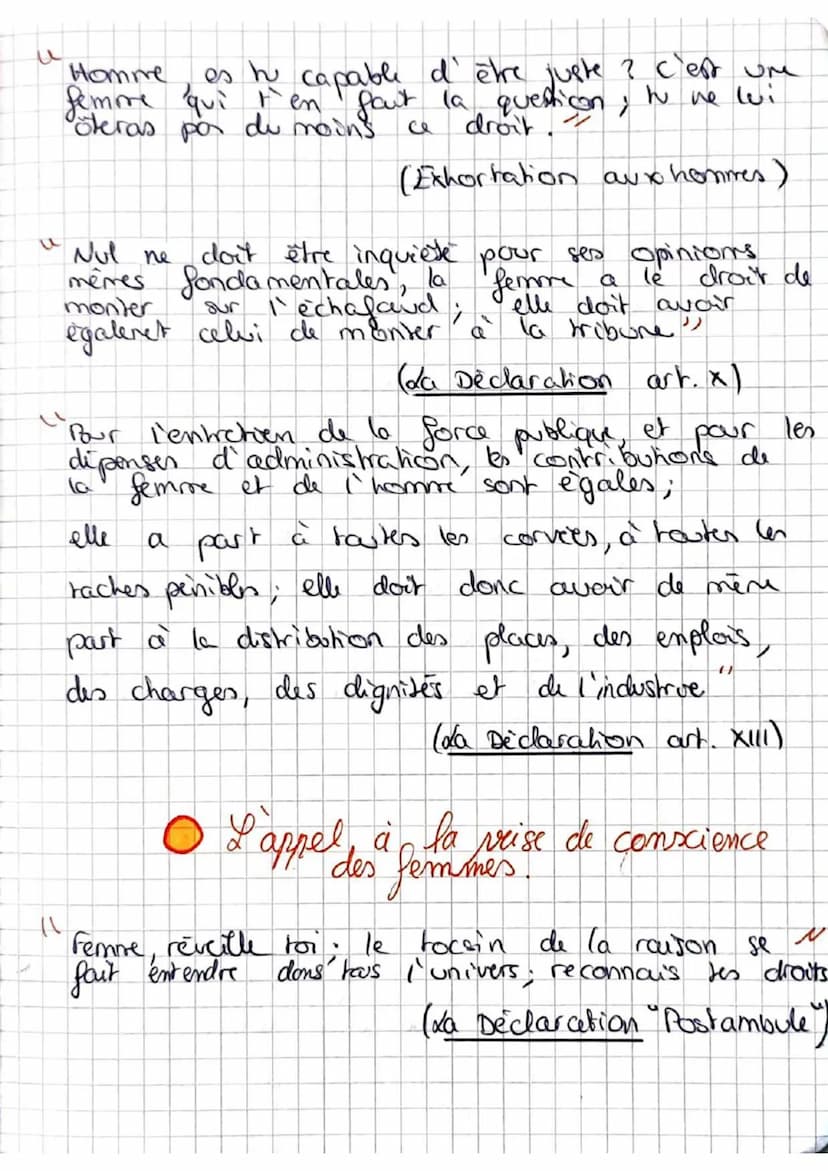 "Homme, es tu capable d'être juste ? C'est une
femme qui t'en fait la question ; tu ne lui
ôteras pas du moins ce droit."
(Exhortation aux hommes)
"Nul ne doit être inquiété pour ses opinions
mêmes fondamentales, la femme a le droit de
monter sur l'échafaud ; elle doit avoir
égalemet celui de monter à la tribune"
(La Déclaration art. X)
"Pour l'entretien de la force publique, et pour les
dépenses d'administration, les contributions de
la femme et de l'homme sont égales ;
elle a part à toutes les corvées, à toutes les
taches pénibles ; elle doit donc avoir de même
part à la distribution des places, des emplois,
des charges, des dignités et de l'industrie"
(La Déclaration art. XIII)
L'appel à la prise de conscience
des femmes.
"Femme, réveille toi ; le tocsin de la raison se
fait entendre dans tous l'univers ; reconnais tes droits"
(La Déclaration "Postambule")